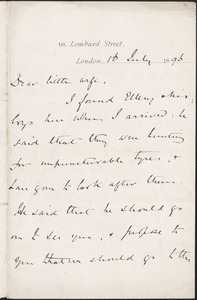 66, Lombard Street,
London, 1st July 1896
Dear little wife,
I found Ellery & his
boys here when I arrived: he
said that they were hunting
for unpuncturable tyres, &
had gone to look after them.
He said that he should go
on to see you, & propose to
you that we should go to the